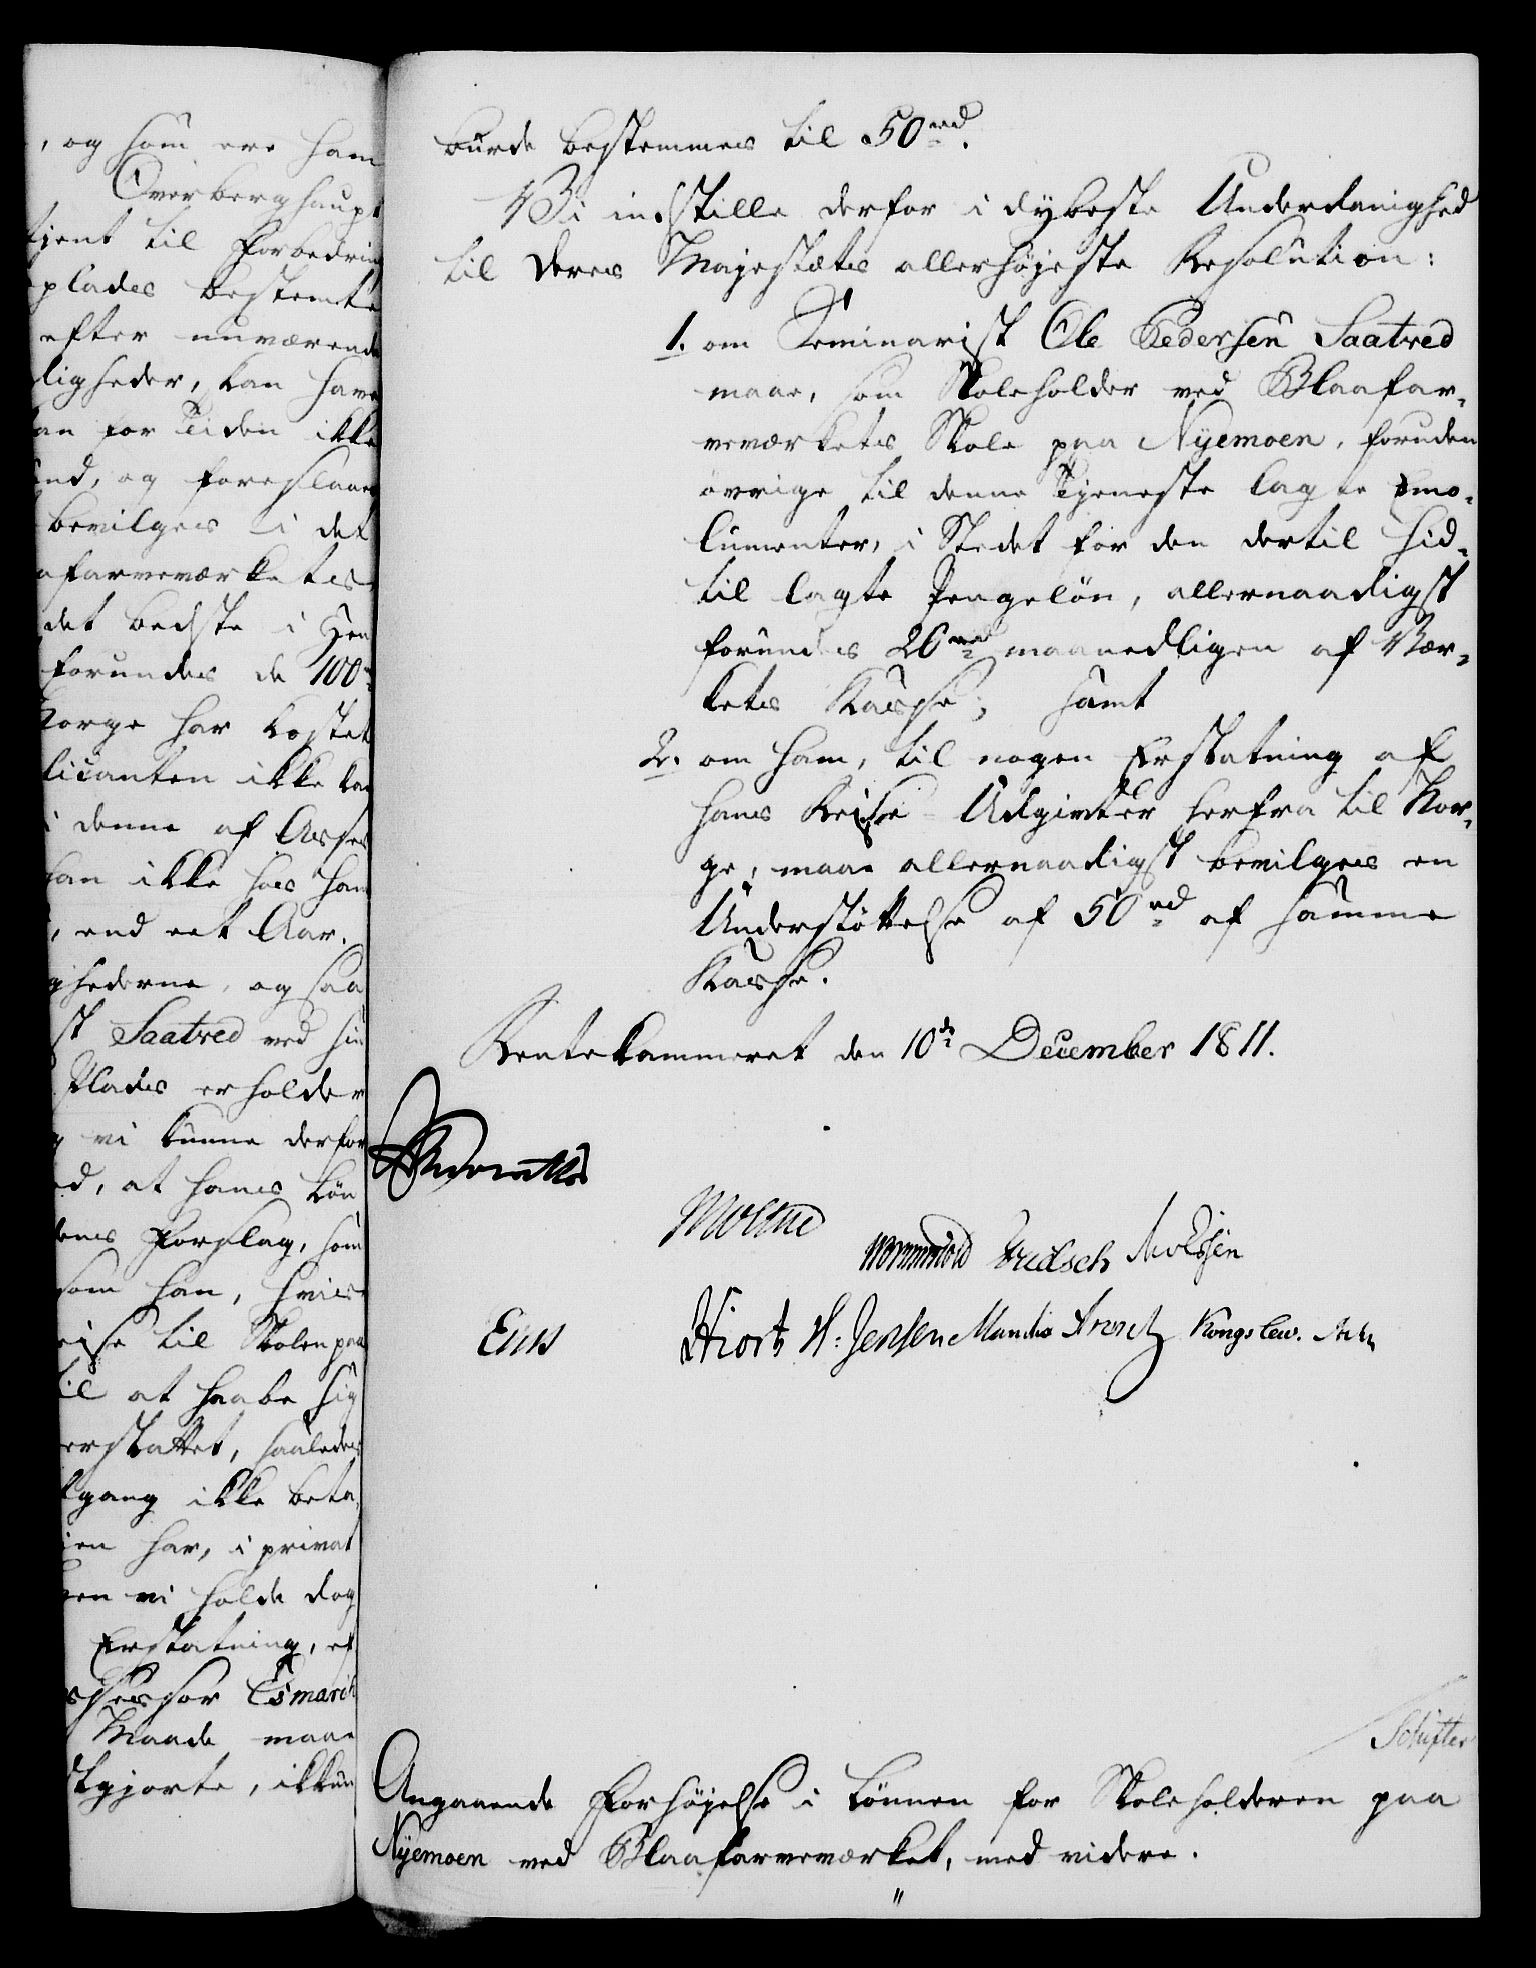 , og som ere ham
Overberghaupt
tjent til Forbedring
plades bestemte
efter nuværende
ligheder, kan have
an for Tiden ikke
ind, og foreslaaer
bevilges i det
afarveværkets
det bedste i Hen
forundes de 100
Norge har kostet
licanten ikke kan
i denne af Asses
kan ikke hos ham
, end eet Aar.
ghederne, og saa
st Saatved ved sin
Plads erholder
g vi kunne derfor
ed, at hans Løn
dens Forslag, som
som han, hvis
eise til Skolen paa
til at haabe sig
erstattet, saaledes
gang ikke beta,
ien har, i privat
gen vi holde dog
Erstatning, ef
ssessor Esmarch
Maade maae
skgjorte, ikkun
burde bestemmes til 50 rd.
Vi indstille derfor i dybeste Underdanighed
til Deres Majestæts allerhøjeste Resolution:
1. om Seminarist Ole Pedersen Saatved
maae, som Skoleholder ved Blaafar-
veværkets Skole paa Nyemoen, foruden
øvrige til denne Tjeneste lagte Emo-
lumenter, i Stedet for den dertil hid-
til lagte Pengeløn, allernaadigst
forundes 20 rd maanedligen af Vær-
kets Kasse; samt
2. om ham, til nogen Erstatning af
hans Reise-Udgivter herfra til Nor-
ge, maae allernaadigst bevilges en
Understøttelse af 50 rd af samme
Kasse.
Rentekammeret den 10de December 1811.
Moltke
Wormskiold Fridsch
Hiort H: Jensen Manthe Arntz Kongslew.
Schifter
Angaaende Forhøjelse i Lønnen for Skoleholderen paa
Nyemoen ved Blaafarveværket, med videre.
"